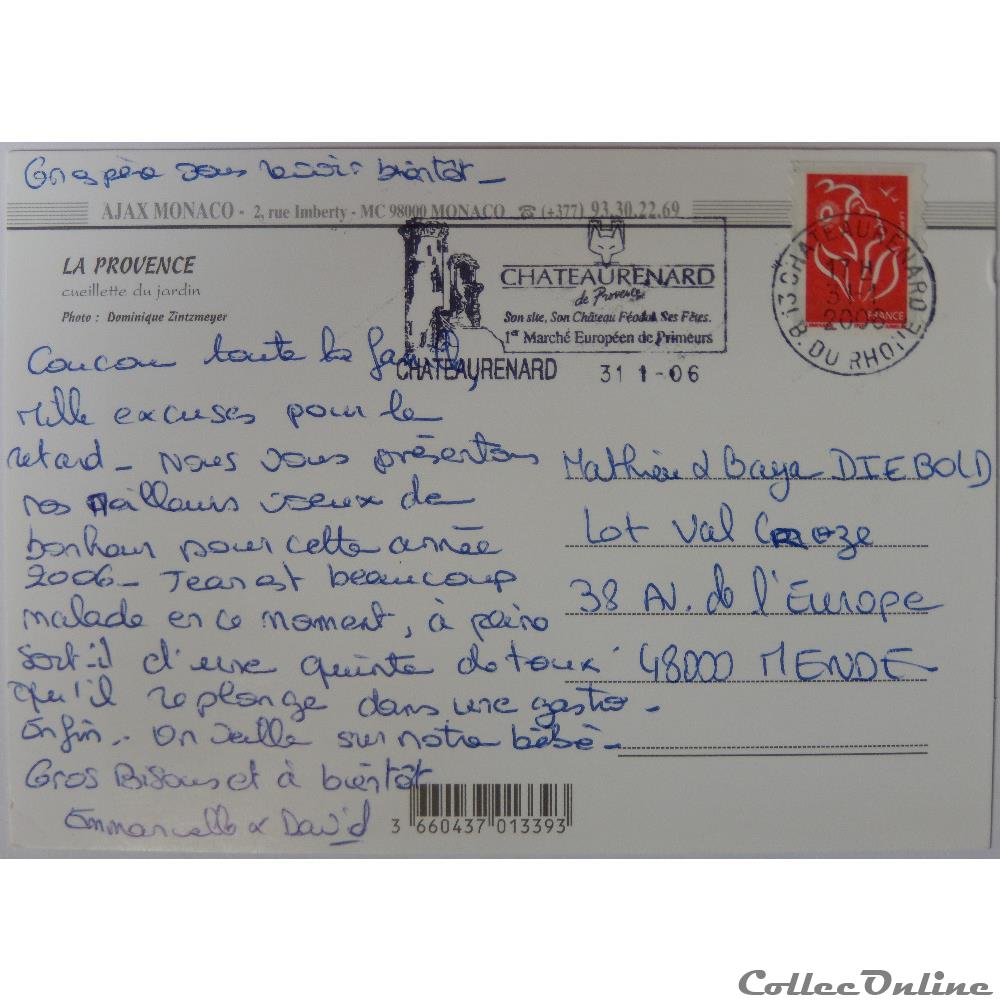 On espère vous revoir bientôt_
AJAX MONACO - 2, rue Imberty - MC 98000 MONACO ☎ (+377) 93.30.22.69
LA PROVENCE
cueillette du jardin
Photo : Dominique Zintzmeyer
CHATEAURENARD
de Provence
Son site, Son Château Féodal Ses Fêtes.
1er Marché Européen de Primeurs
CHATEAURENARD 31 1-06
13 CHATEAURENARD
17 H
31-1
2006
B. DU RHONE
LA
FRANCE
Coucou toute la famille,
Mille excuses pour le
retard_ Nous vous présentons
nos meilleurs voeux de
bonheur pour cette année
2006_ Jean est beaucoup
malade en ce moment, à peine
sort-il d'une quinte de toux
qu'il replonge dans une gastro_
Enfin.. On veille sur notre bébé_
Gros Bisous et à bientôt
Emmanuelle & David
Mathieu & Baya DIEBOLD
Lot Val Croze
38 AV. de l'Europe
48000 MENDE
3 660437 013393
CollecOnline